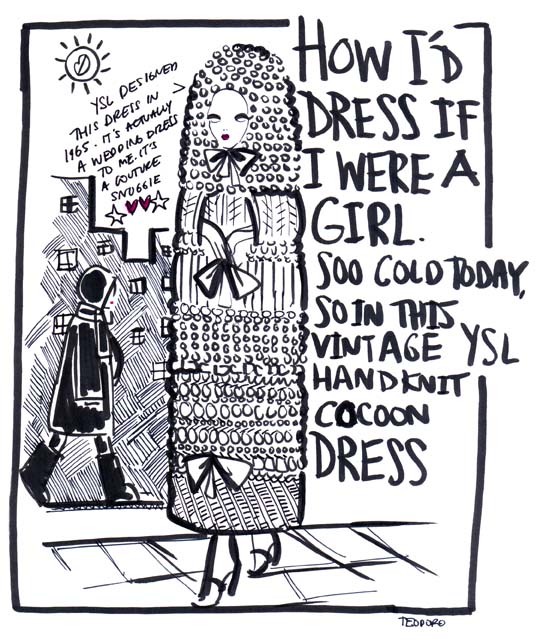 HOW I'D
DRESS IF
I WERE A
GIRL.
SOO COLD TODAY,
SO IN THIS
VINTAGE YSL
HANDKNIT
COCOON
DRESS
YSL DESIGNED
THIS DRESS IN
1965. IT'S ACTUALLY
A WEDDING DRESS
TO ME. IT'S
A COUTURE
SNUGGIE
TEODORO